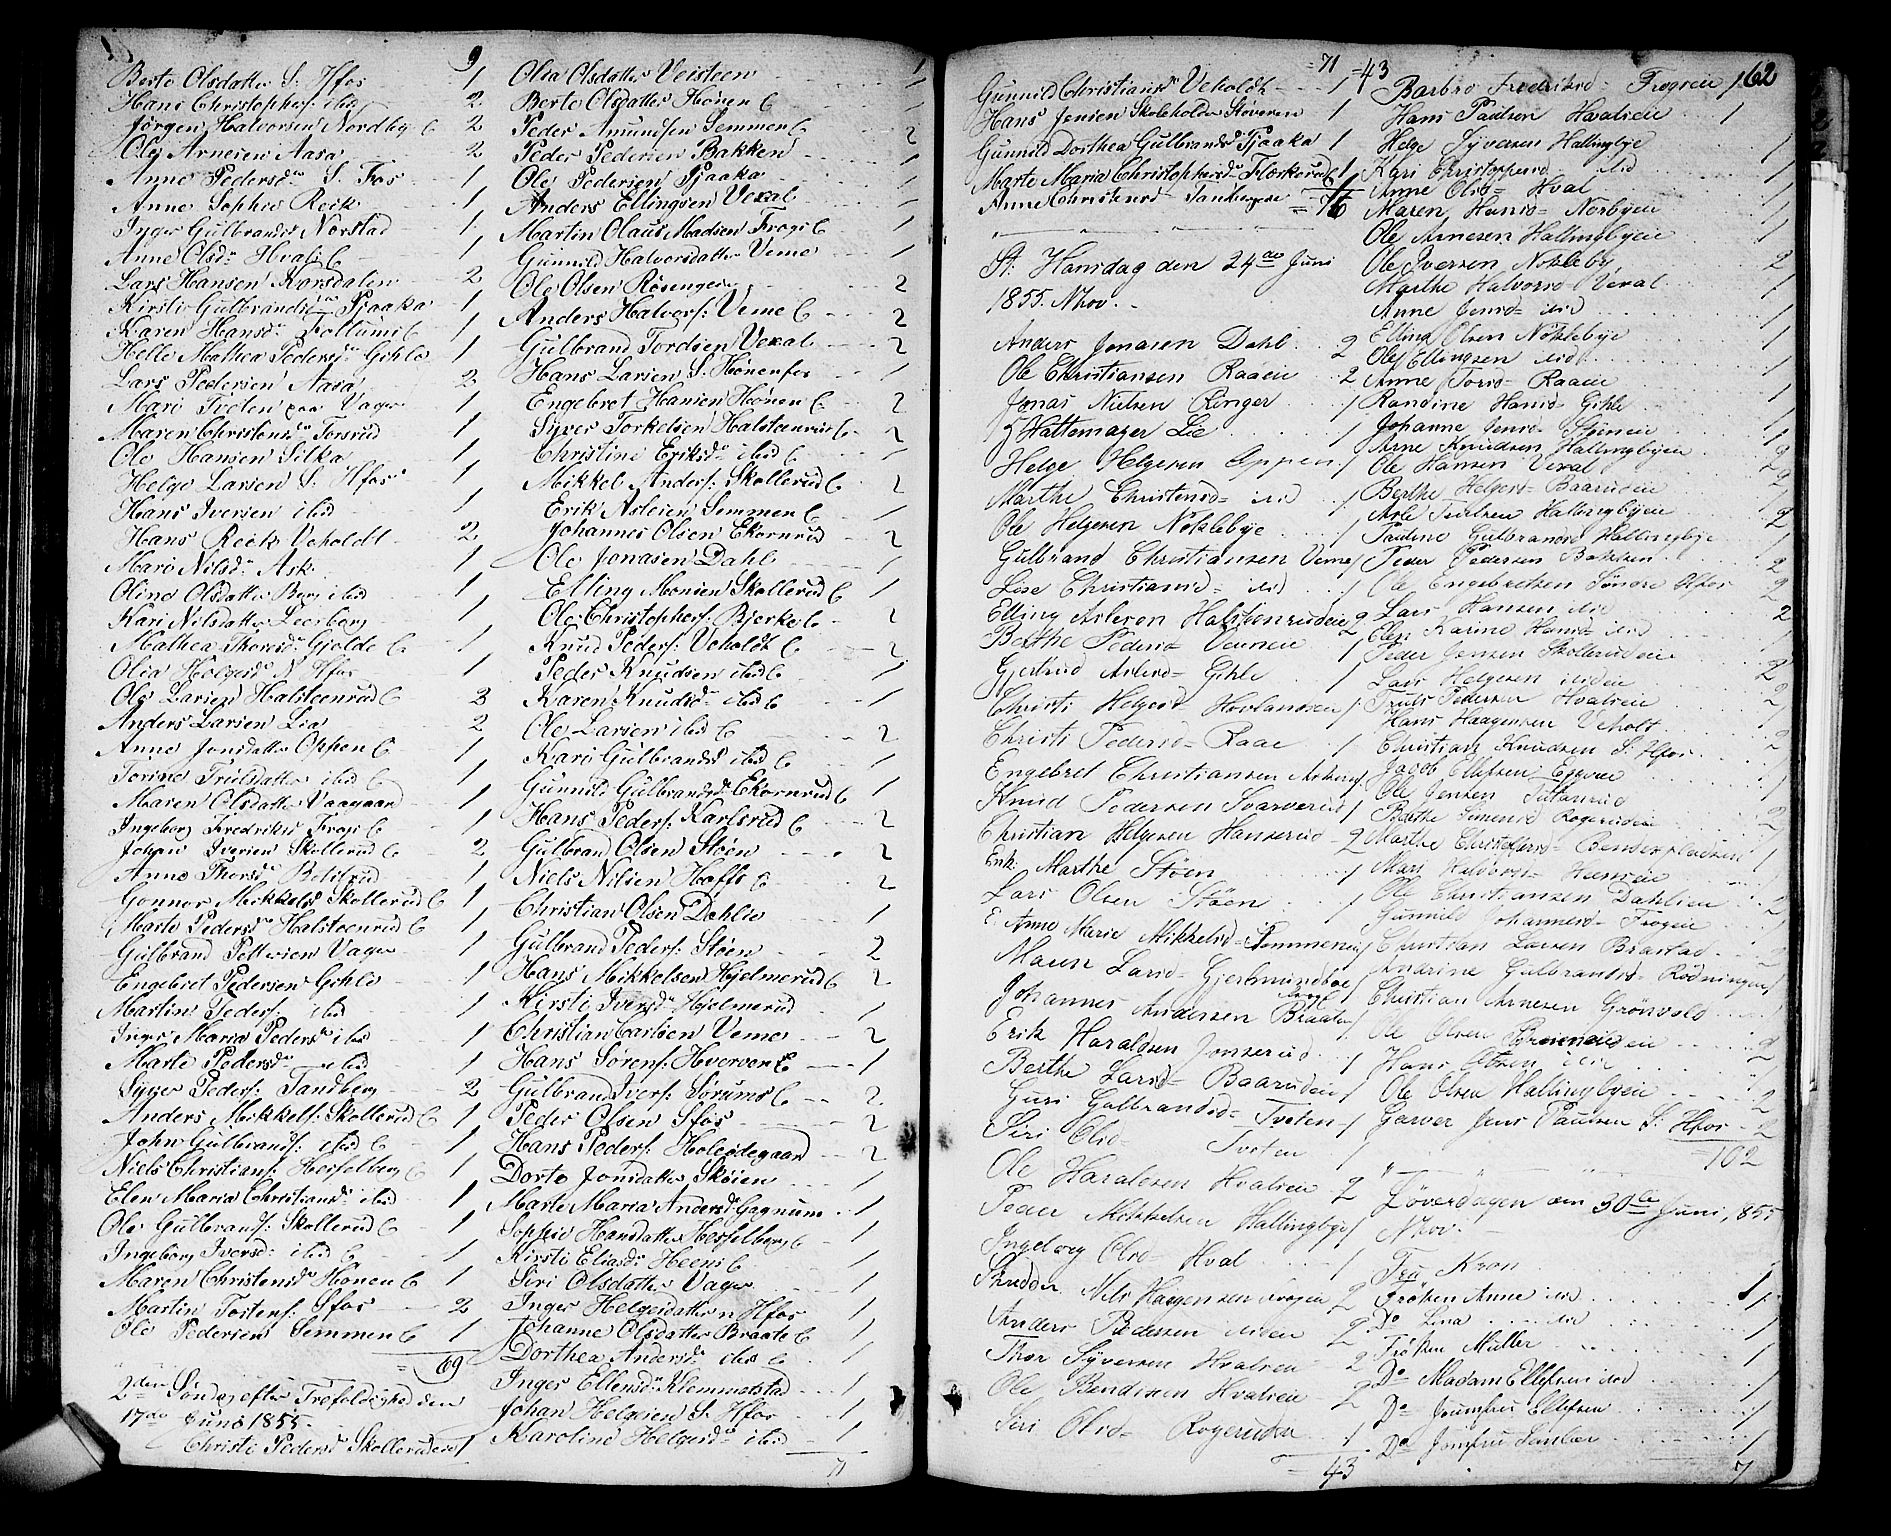 9
Berte Olsdatter S. Hfos 1
Hans Christophers: ibid 2
Jörgen Halvorsen Nordby E 2
Ole Arnesen Aasa 2
Anne Pedersdr S. Fos 1
Anne Sophie Reik 1
Inger Gulbrandsd Norstad 1
Anne Olsdr Hval E 1
Lars Hansen Karsdalen 2
Kirstie Gulbrandsdr Pjaaka 1
Karen Hansdr Follum E 1
Helle Mathea Pedersdr Gihle 1
Lars Pedersen Aasa 2
Mari Tveten paa Vager 1
Maren Christensdr Forsrud 1
Ole Hansen Silka 1
Helge Larsen S. Hfos 1
Hans Iversen ibid 1
Hans Reik Veholdt 2
Mari Nilsdr Ask 1
Oline Olsdatter Berg ibid 1
Kari Nilsdatter Leerberg 1
Mathea Thoresdr Gjelde E 1
Olia Helgesdr N. Hfos 1
Ole Larsen Halsteenrud E 2
Anders Larsen Lia 2
Anne Jonsdatter Oppen E 1
Torine Trulsdatter ibid E 1
Maren Olsdatter Vaagaard 1
Ingeborg Fredriksd Frogs E 1
Johan Iversen Skollerud E 2
Anne Thorsdr Bolisrud 1
Gonnor Mikkelsd Skollerud E 1
Marte Pedersd Halsteenrud E 1
Gulbrand Pettersen Vager 1
Engebret Pedersen Gihle 1
Martin Peders: ibid 1
Inger Maria Pedersdr ibid 1
Marte Pedersdr ibid 1
Syver Peders: Tandberg 2
Anders Mikkels: Skollerud E 1
John Gulbrands: ibid E 1
Niels Christians: Hesselberg E 1
Elen Maria Christiansdr ibid 1
Ole Gulbrands: Skollerud E 1
Ingeborg Iversd: ibid E 1
Maren Christensdr Hönen E 1
Martin Torstens: Hfos 2
Ole Pedersen Semmen E 1
= 69
2den Söndag efter Trefoldighed den
17de Juni 1855.
Christi Pedersdr Skollerudeie 1
Olia Olsdatter Veisteen 1
Berte Olsdatter Hönen E 1
Peder Amundsen Semmen E 2
Peder Pedersen Bakken 1
Ole Pedersen Pjaaka 1
Anders Ellingsen Vexal 1
Martin Olaus Madsen Frogs E 1
Gunnild Halvorsdatter Veme 1
Ole Olsen Rösengen 2
Anders Halvors: Veme E 2
Gulbrand Tordsen Vexal 2
Hans Larsen S. Hönenfos 1
Engebret Hansen Hönen E 2
Syver Torkelsen Halsteenrud E 2
Christine Eriksdr ibid E 1
Mikkel Anders: Skollerud E 2
Erik Aslesen Semmen E 1
Johannes Olsen Ekornrud 2
Ole Jonasen Dahl 1
Elling Monsen Skollerud E 1
Ole Christophers: Bjerke E 2
Knud Peders: Veholdt E 2
Peder Knudsen ibid E 1
Karen Knudsdr ibid E 1
Ole Larsen ibid E 2
Kari Gulbrandsd ibid E 1
Gunnild Gulbrandsd Ekornrud E 1
Hans Peders: Karlsrud E 2
Gulbrand Olsen Stöen 2
Niels Nilsen Hoffs E 2
Christian Olsen Dahlie 1
Gulbrand Peders: Stöen 2
Hans Mikkelsen Hjelmerud E 2
Kirsti Iversdr Hjelmerud 1
Christian Carlsen Veme 2
Hans Sörens: Hverven E 1
Gulbrand Ivers: Sörums E 2
Peder Olsen Hfos 2
Hans Peders: Holesdegaard 2
Dorte Jonsdatter Sköien 1
Marte Maria Andersd: Gagnum 1
Sophie Hansdatter Hesselberg E 1
Kirsti Eliasd: Heens E 1
Siri Olsdatter Vager 1
Inger Helgesdatter n Hfos 1
Johanne Olsdatter Braate E 1
Dorthea Andersdr ibid E 1
Inger Ellensdr Klemmetstad 1
Johan Helgesen S. Hfos 1
Karoline Helgesdr ibid 1
71
= 71
Gunnild Christiansd Veholdt 1
Hans Jensen Skoleholder Stöveren 1
Gunnild Dorthea Gulbrandsd Pjaaka 1
Marte Maria Christophersd Flaskerud E 1
Anne Christensd Tanbergeie 1
= 76
St: Hansdag den 24de Juni
1855. Nhov.
Anders Jonasen Dahl 2
Ole Christiansen Raaeie 2
Jonas Nielsen Ringer 1
Hattemager Lie 1
Helge Helgesen Oppen 1
Marthe Christensd= ibid 1
Ole Helgesen Nökleby 1
Gulbrand Christiansen Veme 1
Lise Christiansd= ibid 1
Elling Aslesen Halsteenrudeie 2
Berthe Pedersd= Vemeeie 1
Gjertrud Aslesd= Gihle 1
Christi Helgesd Hovlandseie 1
Christi Pedersd= Raae 1
Engebret Christiansen 1
Knud Pedersen Svarverud 1
Christian Helgesen Hanserud 2
Enk: Marthe Stöen 1
Lars Olsen Stöen 1
E. Anne Marie Mikkelsd= Semmeneie 1
Maren Larsd= Gjermundboe 1
Johannes Andersen Braaten 1
Erik Haraldsen Jonserud 1
Berthe Larsd= Baarudeie 1
Guri Gulbrandsd= Tveten 1
Siri Olsd= Tveten 1
Ole Haraldsen Hvalseie 2
Peder Mikkelsen Hallingbye 1
Ingeborg Olsd= Hval 1
Skredder Nils Haagensen Frogeie 2
Anders Pedersen ibideie 2
Thor Syversen Hvalseie 2
Ole Bendixen Hvalseie 2
Siri Olsd= Rogerudeie 1
= 43
= 43
162
Barbro Fredriksd= Frogeie 1
Hans Paulsen Hvalseie 1
Helge Syversen Hallingbye 1
Kari Christophersd ibid 1
Anne Olsd= Hval 1
Maren Hansd= Norbyeie 1
Ole Arnesen Hallingbyeie 1
Ole Iversen Nökleby 2
Marthe Halvorsd Vexal 1
Anne Jensd= ibid 1
Elling Olsen Nöklebye 1
Ole Ellingsen ibid 1
Anne Torsd= Raaeie 1
Randine Hansd= Gihle 1
Johanne Jensd= Stömeie 1
Arne Knudsen Hallingbyeie 2
Ole Hansen Vexal 2
Berthe Helgesd= Baarudeie 1
Asle Paulsen Hallingbyeie 2
Pauline Gulbrandsd Hallingbye 1
Peder Pedersen Bakken 2
Ole Engebretsen Söndre Hfos 2
Lars Hansen ibid 2
Elen Karine Hansd= ibid 1
Peder Jensen Skollerudeie 1
Lars Helgesen ibideie 2
Truls Pedersen Hvalseie 2
Hans Haagensen Veholt 1
Christian Knudsen S: Hfos 2
Jacob Ellefsen Eggeie 1
Ole Jensen 1
Berthe Simensd Rogerudeie 2
Marthe Christophersd= Benderpladsen 1
Mari Halvorsd= Hanseie 1
Ole Christiansen Dahlien 2
Gunnild Johannesd= Frogeie 1
Christian Larsen Braastad 2
Andrine Gulbrandsd= Rödningen 1
Christian Arnesen Grönvold 1
Ole Olsen 2
Hans Olsen ibid
Ole Olsen Hallingbyeie 2
Garver Jens Paulsen S: Hfos 2
= 102
Löverdagen den 30te Juni, 1855
Nhov.
Fru Kron 1
Fröken Anne ibid 1
Do Lina ibid 1
Fröken Müller 1
Do Madam Ellefsen ibid 1
Do Jomfru Ellefsen 1
Do Jomfru 1
7